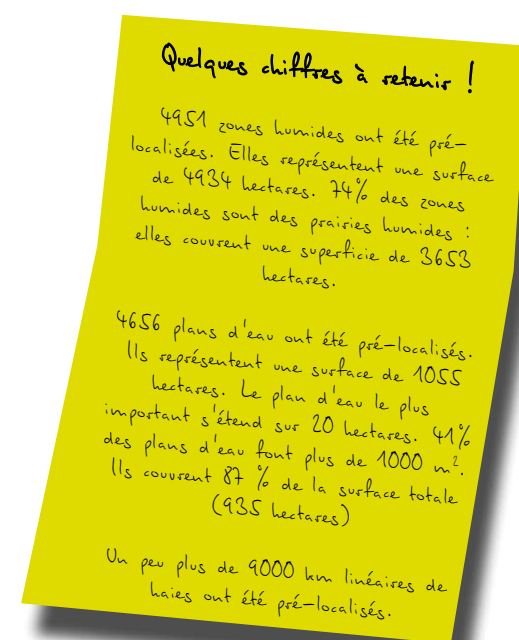 Quelques chiffres à retenir !
4951 zones humides ont été pré-
localisées. Elles représentent une surface
de 4934 hectares. 74% des zones
humides sont des prairies humides :
elles couvrent une superficie de 3653
hectares.
4656 plans d'eau ont été pré-localisés.
Ils représentent une surface de 1055
hectares. Le plan d'eau le plus
important s'étend sur 20 hectares. 41%
des plans d'eau font plus de 1000 m².
Ils couvrent 87 % de la surface totale
(935 hectares)
Un peu plus de 9000 km linéaires de
haies ont été pré-localisés.